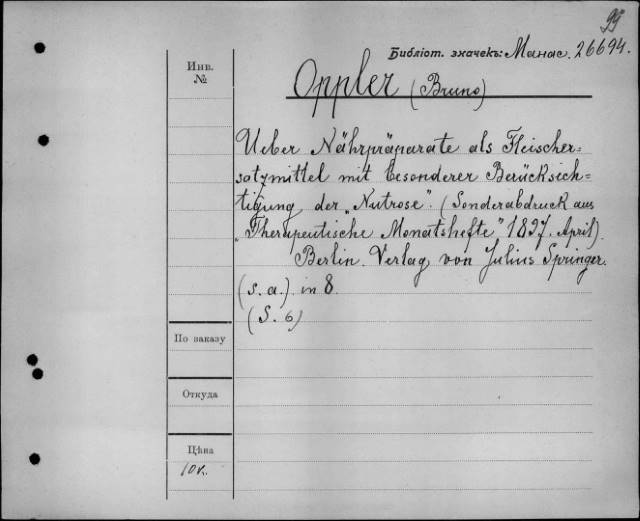 99
Библіот. значекъ: Манас. 26694.
Инв.
№
Oppler (Bruno)
Ueber Nährpräparate als Fleischer-
satzmittel mit besonderer Berücksich-
tigung der „Nutrose". (Sonderabdruck aus
„Therapeutische Monatshefte" 1897. April).
Berlin. Verlag von Julius Springer.
(s. a.). in 8.
(S. 6)
По заказу
Откуда
Цѣна
10 к.